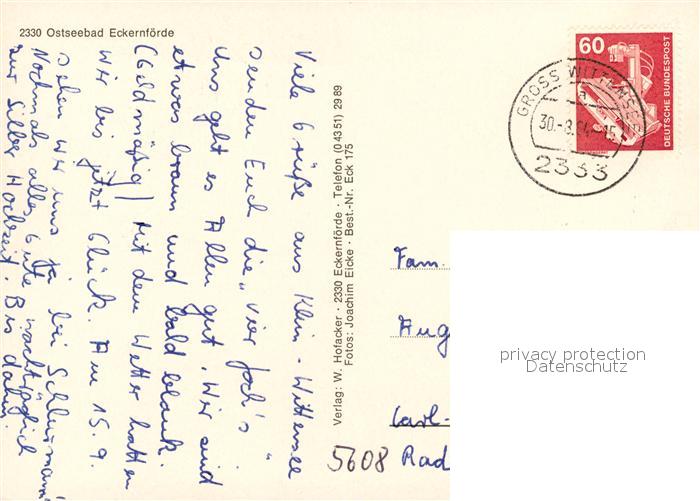 2330 Ostseebad Eckernförde
Viele Grüße aus Klein-Wittensee
senden Euch die „Vier Joch's"
Uns geht es Allen gut. Wir sind
etwas braun und bald blank.
(Geldmäßig) Mit dem Wetter hatten
wir bis jetzt Glück. Am 15.9.
sehen wir uns ja bei
Nochmals alles Gute nachträglich
zur Silber Hochzeit. Bis dahin.
Verlag: W. Hofacker · 2330 Eckernförde · Telefon (0 43 51) 29 89
Fotos: Joachim Eicke · Best.-Nr. Eck 175
60
DEUTSCHE BUNDESPOST
GROSS WITTENSEE
a
30.-8.
2333
Fam.
Aug
Carl-
5608 Rad
privacy protection
Datenschutz